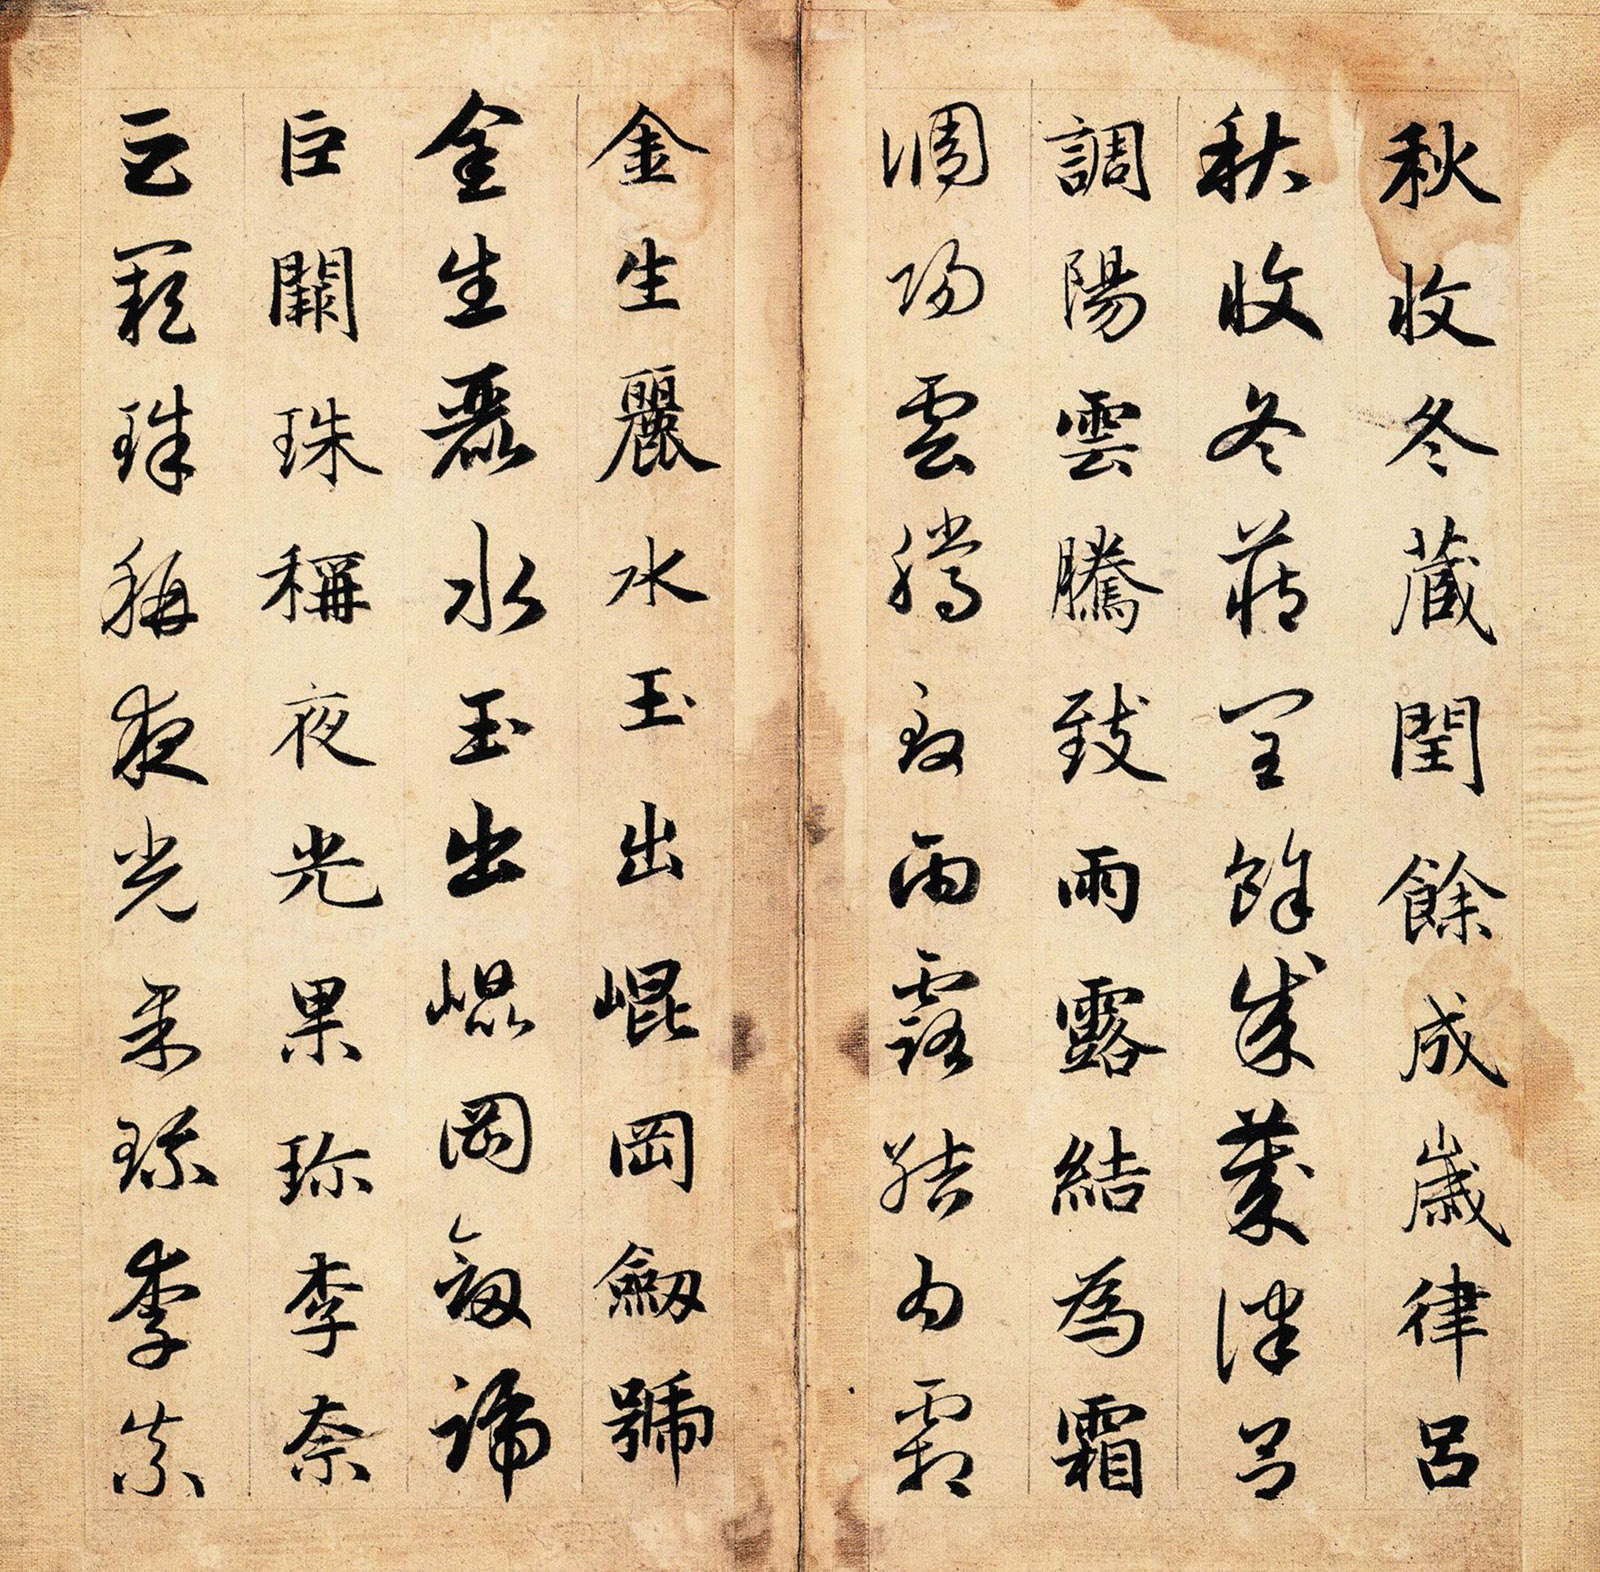 秋收冬藏閏餘成歲律呂
秋收冬藏閏餘成歲律呂
調陽雲騰致雨露結為霜
調陽雲騰致雨露結為霜
金生麗水玉出崐岡劒號
金生麗水玉出崐岡劒號
巨闕珠稱夜光果珎李柰
巨闕珠稱夜光果珎李柰